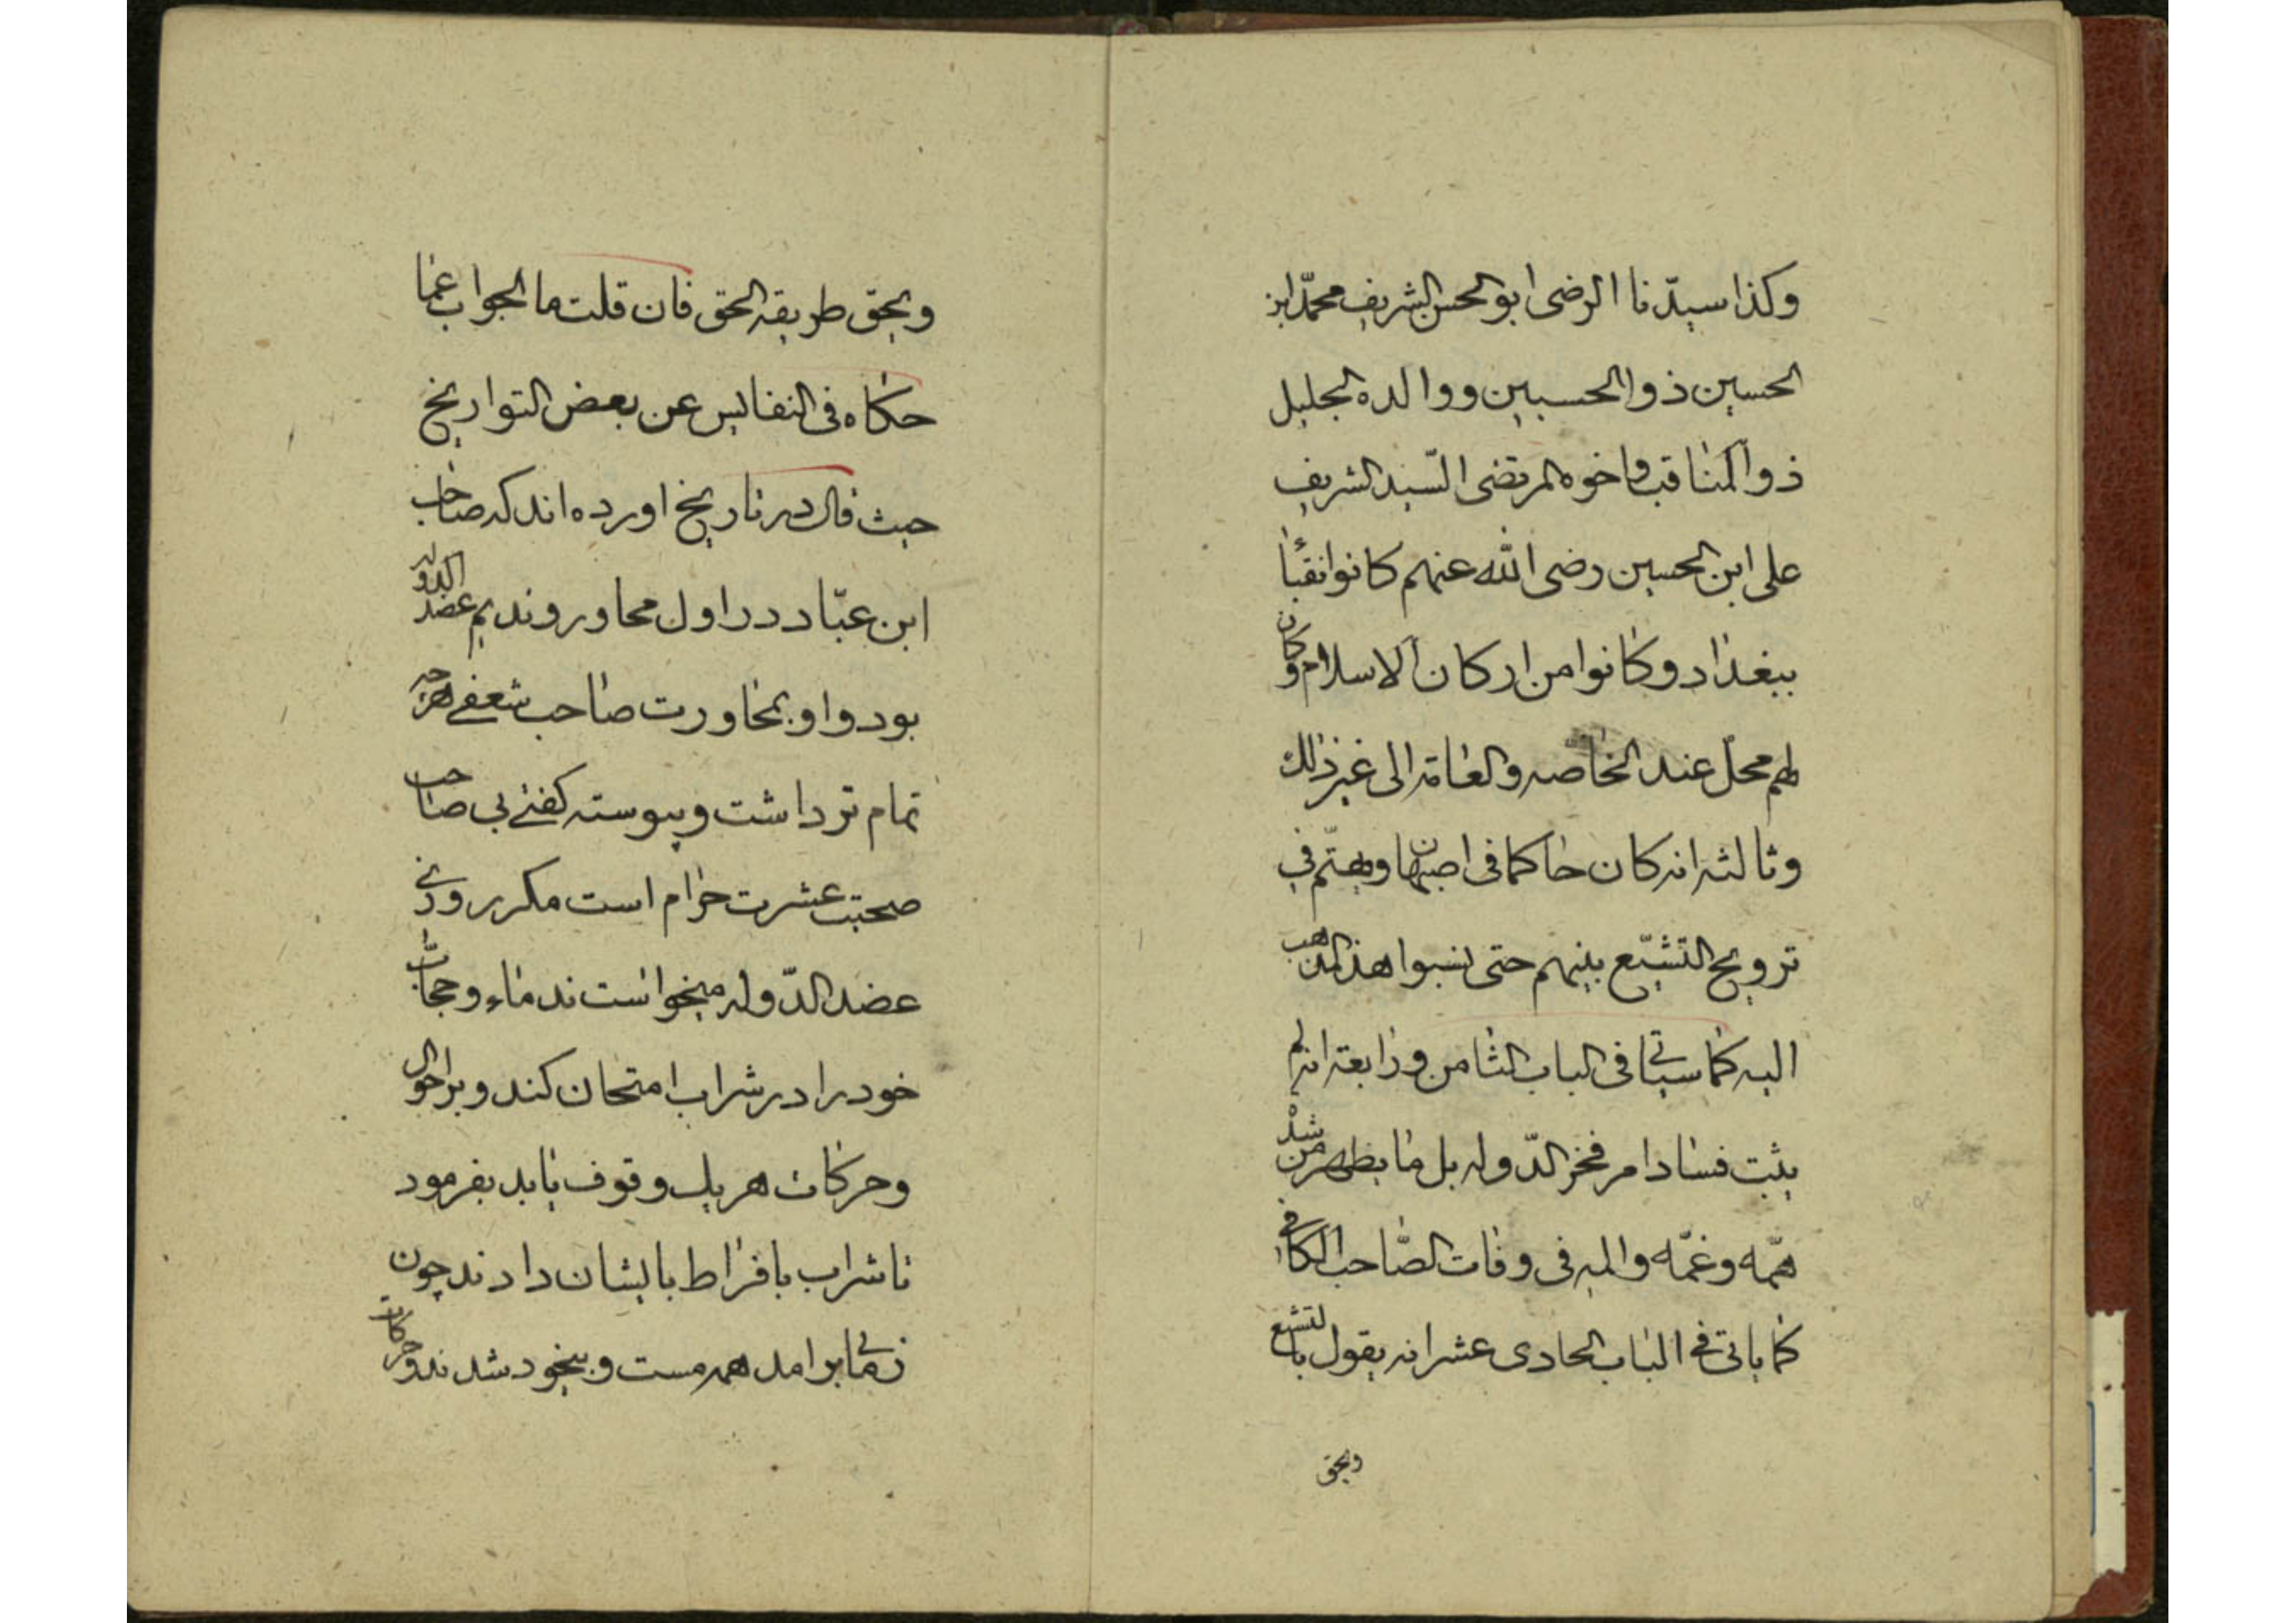 وكذا سيدنا الرضى ابو الحسن الشريف محمد ابن
الحسين ذو الحسبين ووالده الجليل
ذو المناقب واخوه المرتضى السيد الشريف
على ابن الحسين رضى الله عنهم كانوا نقباء
ببغداد وكانوا من اركان الاسلام وكان
لهم محل عند الخاصه والعامه الى غير ذلك
وثالثه انه كان حاكما فى اصبهان ويهتم فى
ترويج التشيع بينهم حتى نسبوا هذا المذهب
اليه كما سياتى فى الباب الثامن ورابعه انه لم
يثبت فساد امر فخر الدوله بل ما يظهر من شده
همه وغمه والمه فى وفات الصاحب الكافى
كما ياتى فى الباب الحادى عشر انه يقول بالتشيع
ويحق
ويحق طريقه الحق فان قلت ما الجواب عما
حكاه فى النفايس عن بعض التواريخ
حيث قال در تاريخ اورده اند كه صاحب
ابن عباد در اول محاور و نديم عضد الدوله
بود و او بمحاورت صاحب شعفى هر چه
تمام تر داشت و پيوسته كفتى بى صاحب
صحبت عشرت حرام است مكرر روزى
عضد الدوله ميخواست ندماء و حجاب
خود را در شراب امتحان كند و بر احوال
و حركات هر يك وقوف يابد بفرمود
تا شراب بافراط بايشان دادند چون
زمانى برامد همه مست و بيخود شدند و حركات